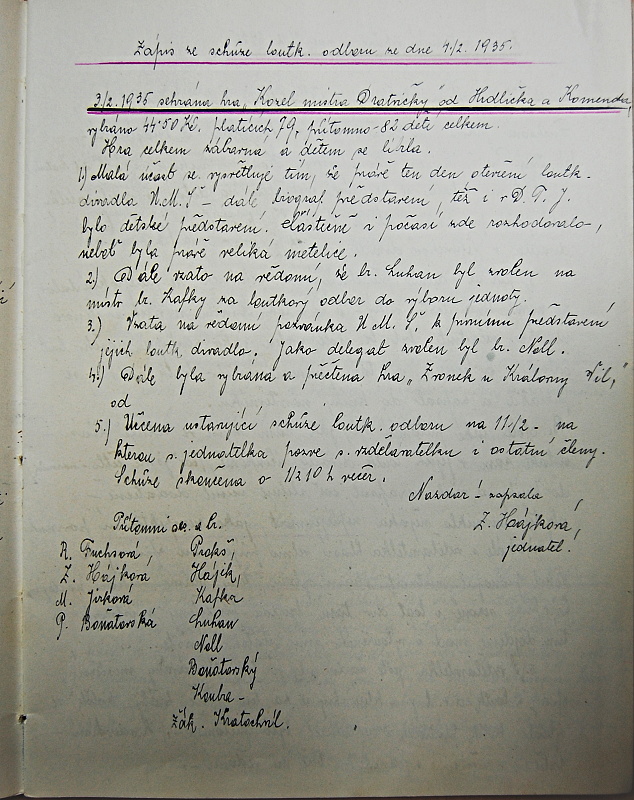 Zápis ze schůze loutk. odboru ze dne 4./2. 1935.
3./2. 1935 sehrána hra „Kozel mistra Dratvičky" od Hrdlička a Komenda,
vybráno 44.50 Kč. platících 79, přítomno 82 dětí celkem.
Hra celkem zábavná a dětem se líbila.
1) Malá účast se vysvětluje tím, že právě ten den otevření loutk.
divadla Ú.M.Š. – dále biograf představení, též i v D.T.J.
bylo dětské představení. Částečně i počasí zde rozhodovalo,
neboť byla právě veliká metelice.
2.) Dále vzato na vědomí, že br. Luhan byl zvolen na
místo br. Kafky za loutkový odbor do výboru jednoty.
3.) Vzata na vědomí pozvánka Ú.M.Š. k prvnímu představení
jejich loutk. divadlo. Jako delegát zvolen byl br. Noll.
4.) Dále byla vybrána a přečtena hra „Zvonek u Královny Vil,"
od
5.) Určena ustavující schůze loutk. odboru na 11./2. – na
kterou s. jednatelka pozve s. vzdělavatelku i ostatní členy.
Schůze skončena o 1/2 10 h večer.
Nazdar! – zapsala
Z. Hájková,
jednatel.
Přítomni ses. a br.
R. Fuchsová, Prokš,
Z. Hájková Hájek,
M. Jirková Kafka
P. Boňatovská Luhan
Noll
Boňatovský
Kouba –
žák. Kratochvíl.